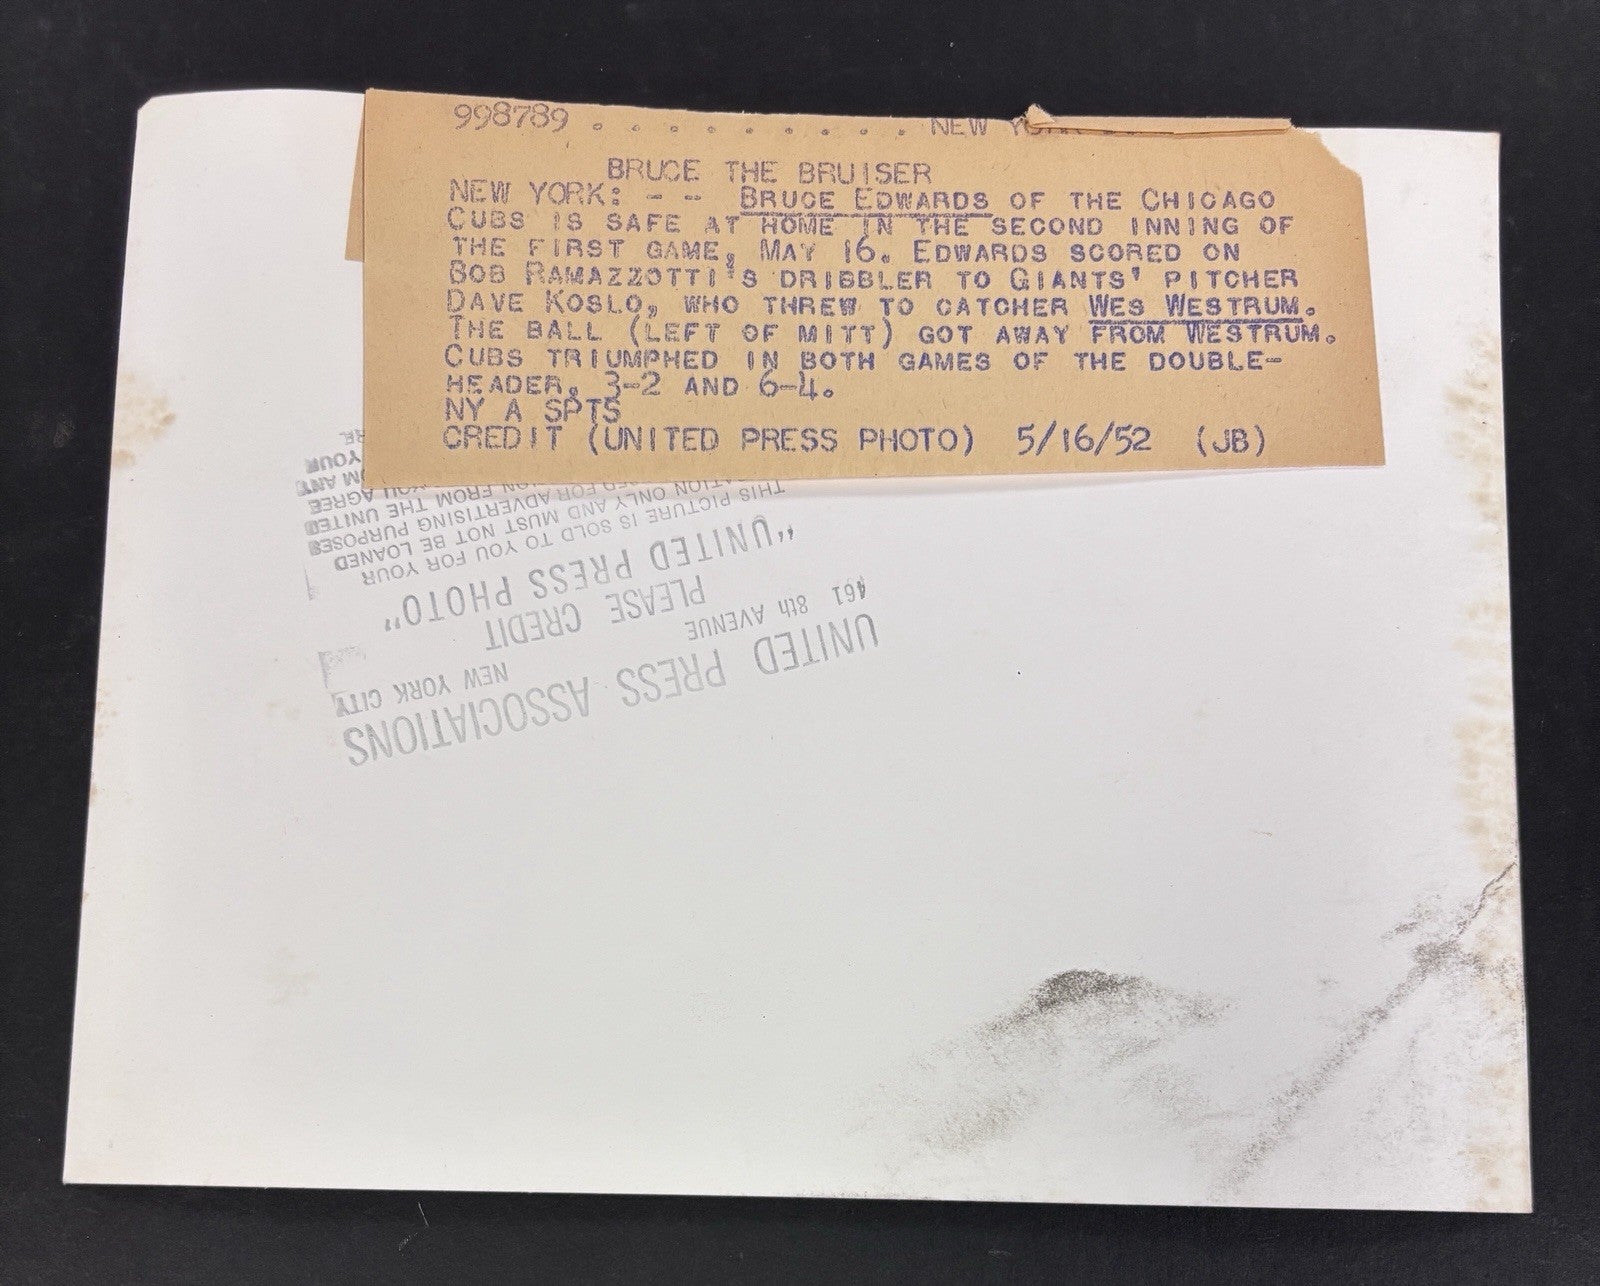 998789 . . . . . . . . . NEW YORK
BRUCE THE BRUISER
NEW YORK: - - BRUCE EDWARDS OF THE CHICAGO
CUBS IS SAFE AT HOME IN THE SECOND INNING OF
THE FIRST GAME, MAY 16. EDWARDS SCORED ON
BOB RAMAZZOTTI'S DRIBBLER TO GIANTS' PITCHER
DAVE KOSLO, WHO THREW TO CATCHER WES WESTRUM.
THE BALL (LEFT OF MITT) GOT AWAY FROM WESTRUM.
CUBS TRIUMPHED IN BOTH GAMES OF THE DOUBLE-
HEADER, 3-2 AND 6-4.
NY A SPTS
CREDIT (UNITED PRESS PHOTO) 5/16/52 (JB)
UNITED PRESS ASSOCIATIONS
461 8th AVENUE NEW YORK CITY
PLEASE CREDIT
"UNITED PRESS PHOTO"
THIS PICTURE IS SOLD TO YOU FOR YOUR
ONLY AND MUST NOT BE LOANED
FOR ADVERTISING PURPOSES
FROM THE UNITED
YOU AGREE
ANY
YOUR